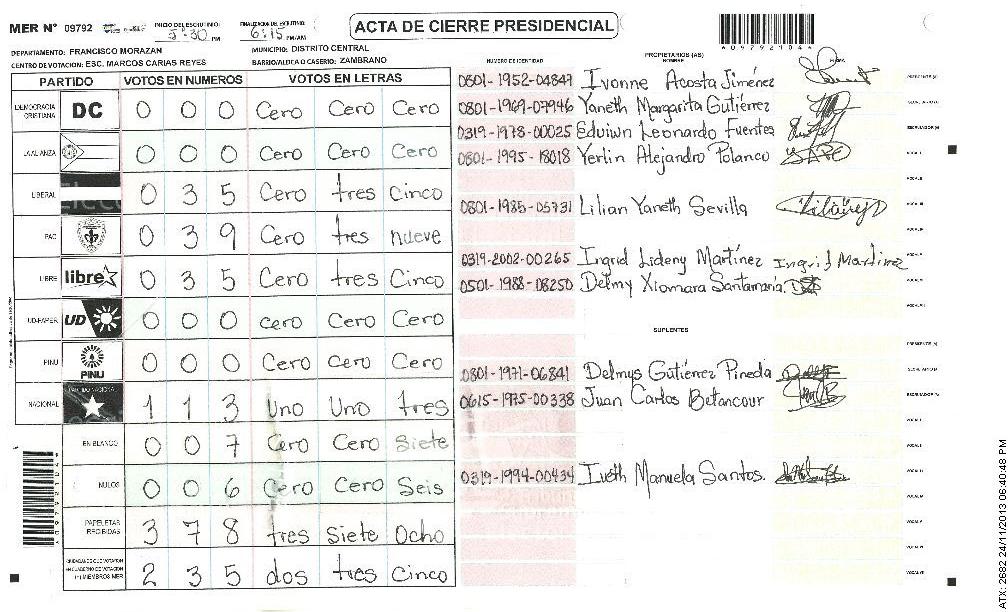 MER Nº 09792
INICIO DEL ESCRUTINIO: 5:30 PM
FINALIZACION DEL ESCRUTINIO: 6:15 PM/AM
ACTA DE CIERRE PRESIDENCIAL
DEPARTAMENTO: FRANCISCO MORAZAN
MUNICIPIO: DISTRITO CENTRAL
CENTRO DE VOTACION: ESC. MARCOS CARIAS REYES
BARRIO/ALDEA O CASERIO: ZAMBRANO
PARTIDO VOTOS EN NUMEROS VOTOS EN LETRAS
DEMOCRACIA CRISTIANA DC 0 0 0 Cero Cero Cero
LA ALIANZA 0 0 0 Cero Cero Cero
LIBERAL 0 3 5 Cero tres Cinco
PAC 0 3 9 Cero tres nueve
LIBRE libre 0 3 5 Cero tres Cinco
UD-FAPER UD 0 0 0 cero Cero Cero
PINU PINU 0 0 0 Cero Cero Cero
NACIONAL PARTIDO NACIONAL 1 1 3 Uno Uno tres
EN BLANCO 0 0 7 Cero Cero Siete
NULOS 0 0 6 Cero Cero Seis
PAPELETAS RECIBIDAS 3 7 8 tres Siete Ocho
CIUDADANOS QUE VOTARON EN CUADERNO DE VOTACION (+) MIEMBROS MER 2 3 5 dos tres Cinco
NUMERO DE IDENTIDAD
PROPIETARIOS (AS)
NOMBRE
FIRMA
0801-1952-04847 Ivonne Acosta Jiménez
0801-1969-07946 Yaneth Margarita Gutiérrez
0319-1978-00025 Eduiwn Leonardo Fuentes
0801-1995-18018 Yerlin Alejandro Polanco
0801-1985-05731 Lilian Yaneth Sevilla
0319-2002-00265 Ingrid Lideny Martínez Ingrid Martinez
0501-1988-08250 Delmy Xiomara Santamaria
SUPLENTES
0801-1971-06841 Delmys Gutiérrez Pineda
0615-1975-00338 Juan Carlos Betancour
0319-1994-00434 Iveth Manuela Santos.
ATX: 2682 24/11/2013 06:40:48 PM